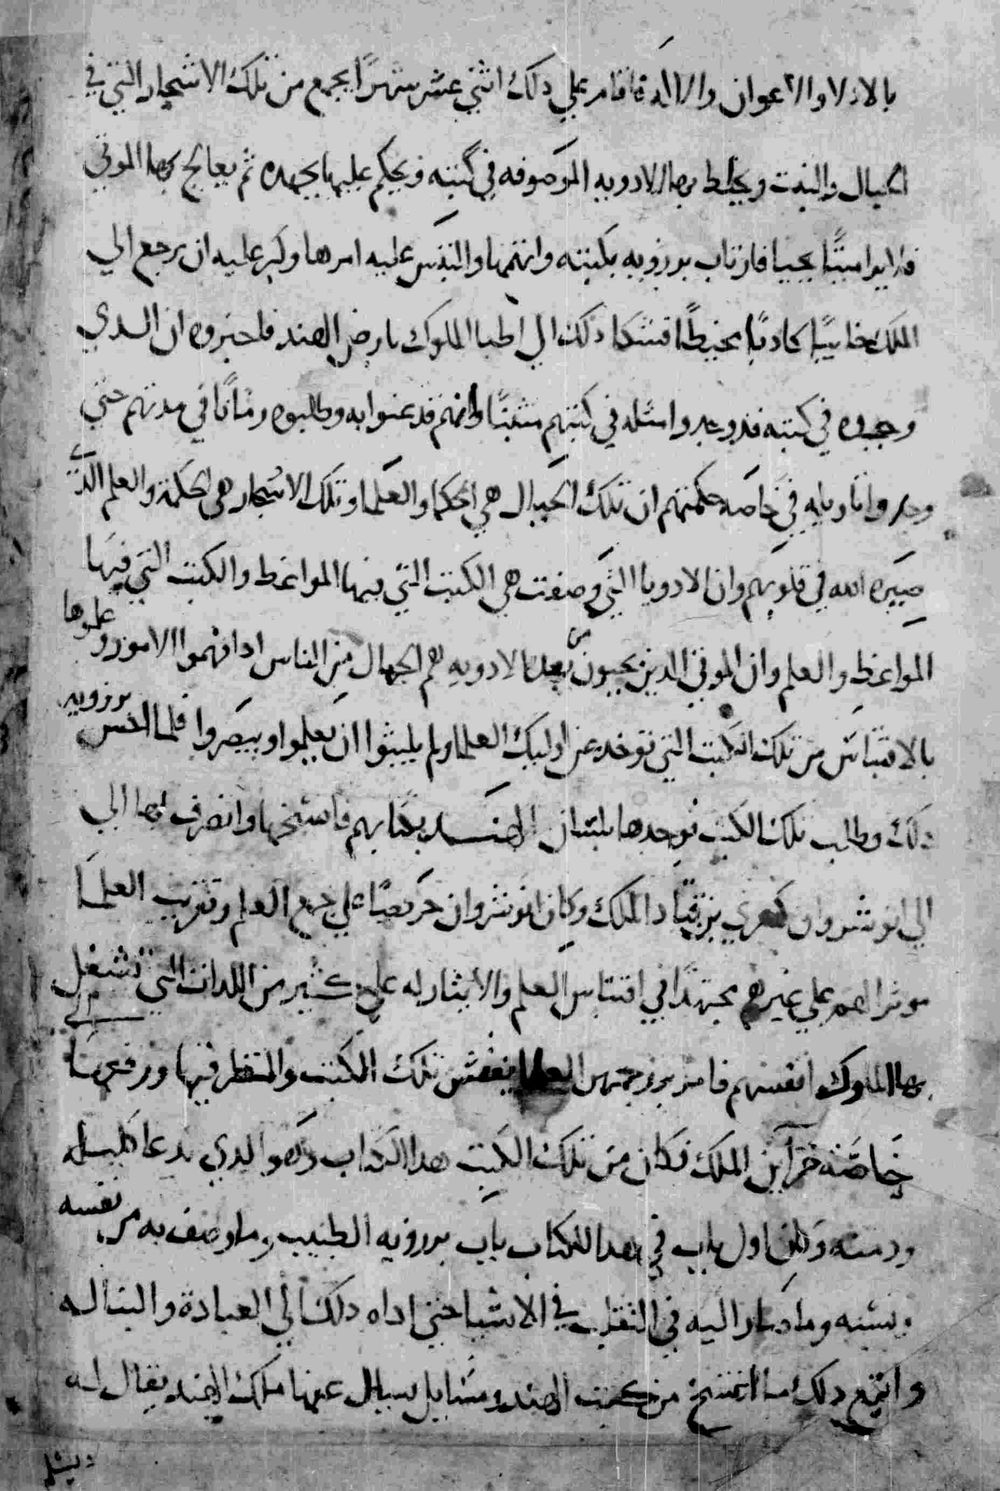 بالادلا والاعوان والالات فاقام علي دلك اثني عشر شهرًا يجمع من تلك الاشجار التي في
الجبال والنبت ويخلط بها الادويه الموصوفه في كتبه ويحكم عليها بجهده ثم يعالج بها الموتي
فلا يرا ميتًا يحيا فارتاب برزويه بكتبه واتهمها والتبس عليه امرها وكبر عليه ان يرجع الي
الملك خايبًا كادبًا فشكا دلك الي اطبا الملوك بارض الهند فاخبروه ان الدي
وجده في كتبه قد وجدوا مثله في كتبهم مثبتًا وانهم قد عنوا به وطلبوه زمانًا في مدتهم حتي
وجدوا تاويله في خاصه حكمتهم ان تلك الجبال هي الحكما والعلما وتلك الاشجار هي الحكمة والعلم الدي
صيره الله في قلوبهم وان الادويا التي وصفت هي الكتب التي فيها المواعظ والكتب التي فيها
المواعظ والعلم وان الموتي الدين يحيون من بعد الادويه هم الجهال من الناس ادا فهموا الامور وعلموها
بالاقتباس من تلك الكتب التي توخد عن اوليك العلما ولم يلبثوا ان يعلموا ويبصروا فلما احس برزويه
دلك وطلب تلك الكتب فوجدها بلسان الهند بكتابهم فاستنسخها وانصرف بها الي
الي انوشروان كسري بن قباد الملك وكان انوشروان حريصًا علي جمع العلم وتقريب العلما
موثرا لهم علي غيرهم مجتهدًا في اقتباس العلم والايثار له علي كثير من اللدات التي تشغل
بها الملوك انفسهم فامر بزرجمهر تلك الكتب والنظر فيها ورفعها الي
خاصة خزاين الملك فكان من تلك الكتب هدا الكتاب وهو الدي يدعا كليله
ودمنه وكان اول باب في هدا الكتاب باب برزويه الطبيب وما وصف به من نفسه
ونسبه وما صار اليه في التقلب في الاشيا حتي اداه دلك الي العبادة والتباله
واتبع دلك ما انتسخ من كتب الهند ومسايل يسال عنها ملك الهند يقال له
ديشلم